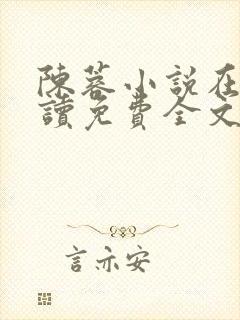 陳蓉小說在
讀免費全文
言亦安